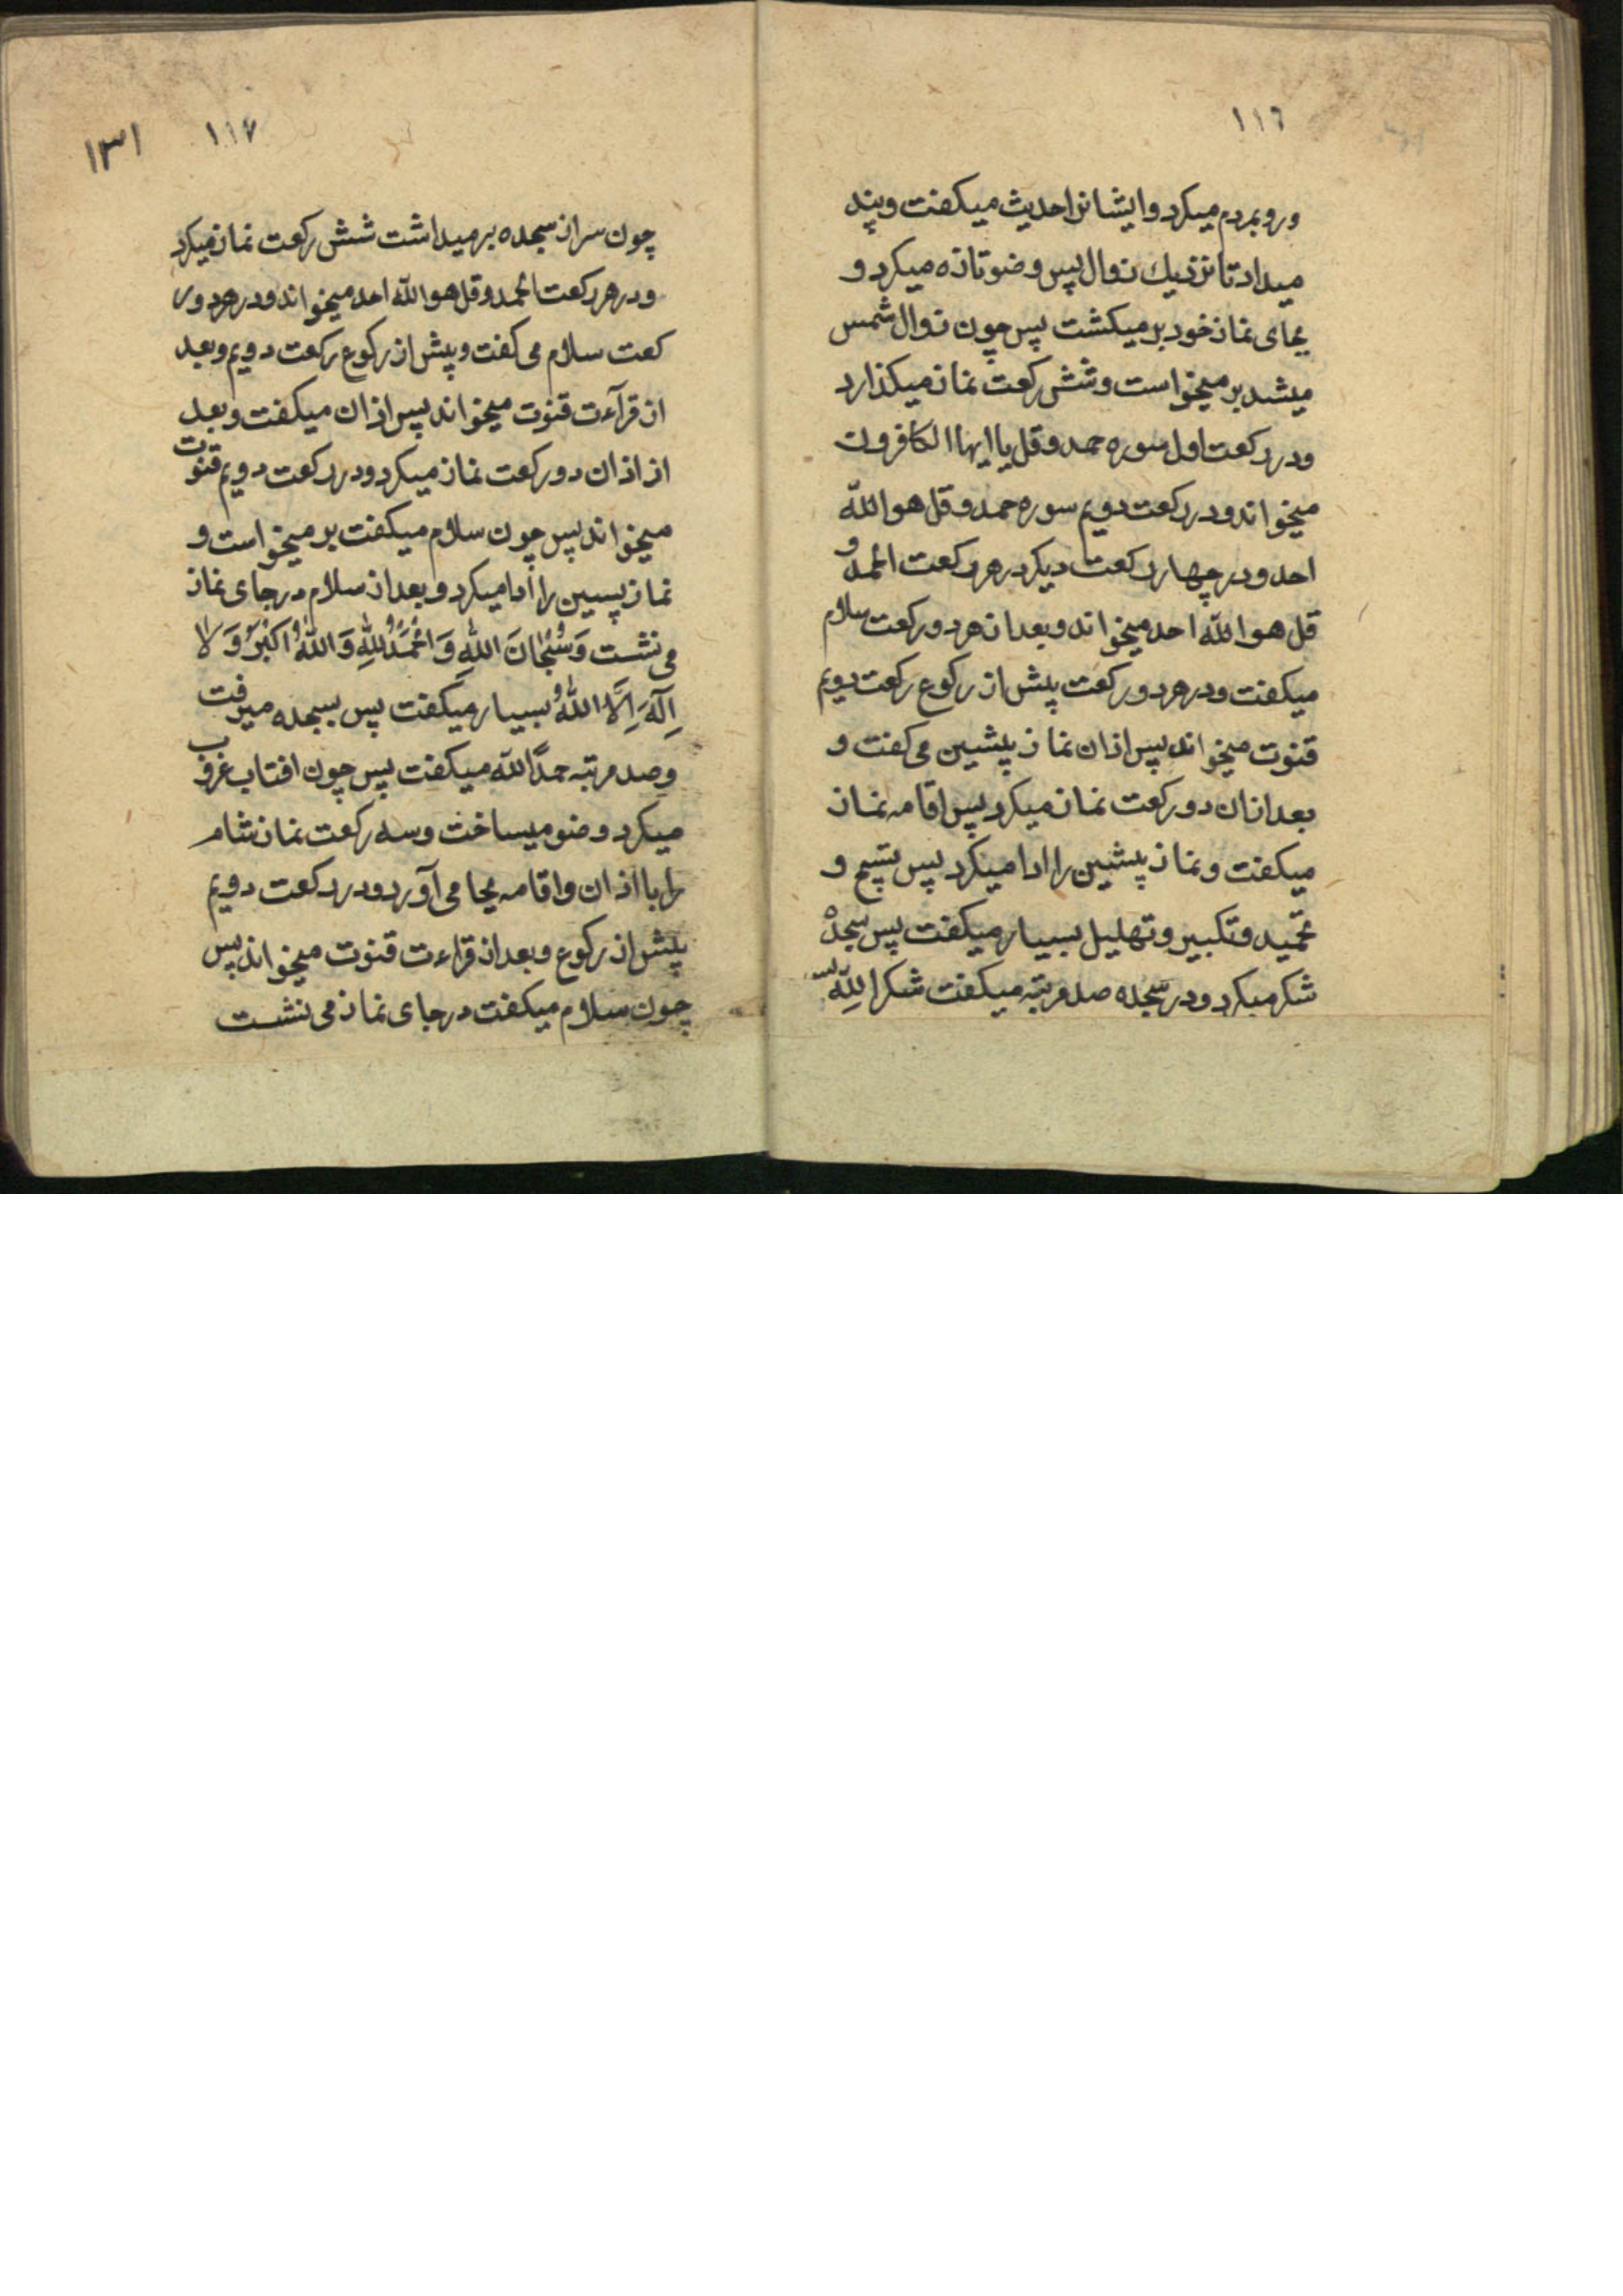 ١١٦
و رو بمردم میکرد و ایشانرا حدیث میکفت و پند
میداد تا نزدیك زوال پس وضو تازه میکرد و
بجای نماز خود بر میکشت پس چون زوال شمس
میشد بر میخواست و شش رکعت نماز میکذارد
و در رکعت اول سوره حمد و قل یا ایها الکافرون
میخواند و در رکعت دویم سوره حمد و قل هو اللّه
احد و در چهار رکعت دیکر در هر رکعت الحمد و
قل هو اللّه احد میخواند و بعد از هر دو رکعت سلام
میکفت و در هر دو رکعت پیش از رکوع رکعت دویم
قنوت میخواند پس اذان نماز پیشین می کفت و
بعد از ان دو رکعت نماز میکرد پس اقامه نماز
میکفت و نماز پیشین را ادا میکرد پس تسبیح و
تحمید و تکبیر و تهلیل بسیار میکفت پس سجدهٔ
شکر میکرد و در سجده صد مرتبه میکفت شکرا للّه پس
١١٧ ١٣١
چون سر از سجده بر میداشت شش رکعت نماز میکرد
و در هر رکعت الحمد و قل هو اللّه احد میخواند و در هر دو ر
کعت سلام می کفت و پیش از رکوع رکعت دویم و بعد
از قرآءت قنوت میخواند پس اذان میکفت و بعد
از اذان دو رکعت نماز میکرد و در رکعت دویم قنوت
میخواند پس چون سلام میکفت بر میخواست و
نماز پسین را ادا میکرد و بعد از سلام در جای نماز
می نشست وَ سُبْحَانَ اللّٰهِ وَ الْحَمْدُ لِلّٰهِ وَ اللّٰهُ اَكْبَرُ وَ لَا
اِلٰهَ اِلَّا اللّٰهُ بسیار میکفت پس بسجده میرفت
و صد مرتبه حمدًا للّه میکفت پس چون افتاب غروب
میکرد وضو میساخت و سه رکعت نماز شام
را با اذان و اقامه بجا می آورد و در رکعت دویم
پیش از رکوع و بعد از قراءت قنوت میخواند پس
چون سلام میکفت در جای نماز می نشست